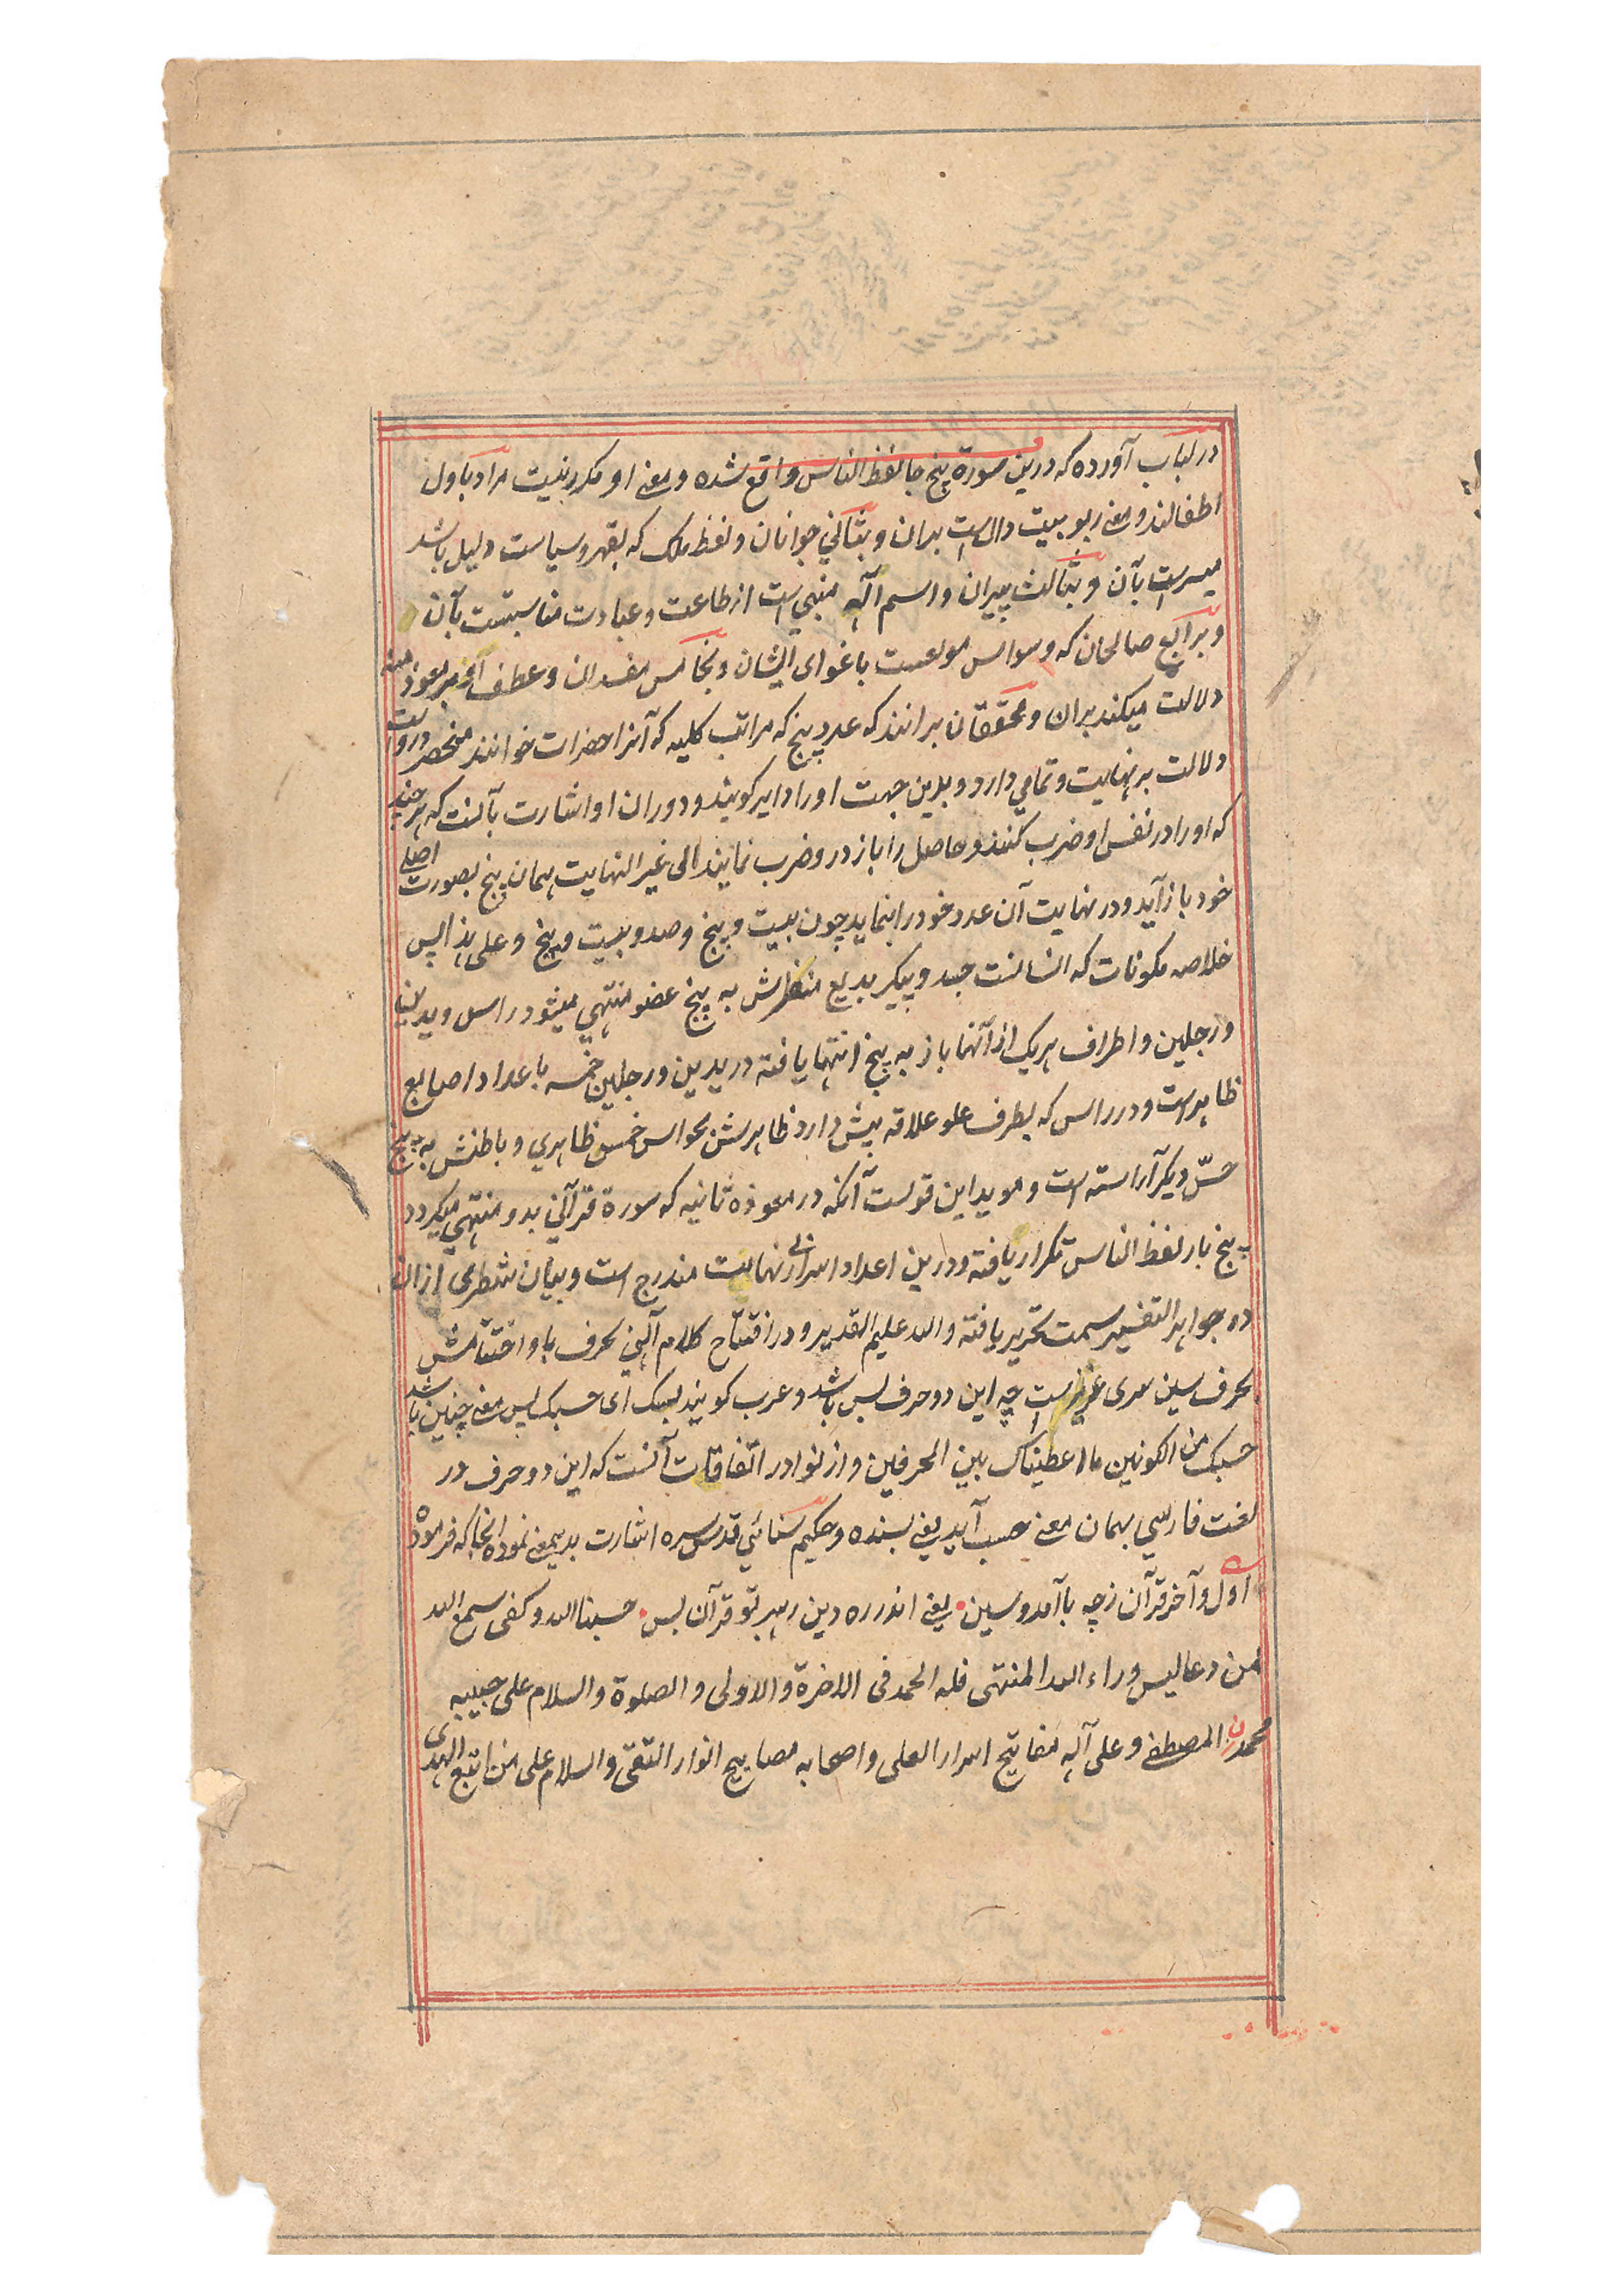 در لباب آورده که درین سورة پنج جا لفظ الناس واقع شده و معنی او مکرر نیست مراد باول
اطفالند و معنی ربوبیت دال است بدان و بثانی جوانان و لفظ ملک که بقهر و سیاست دلیل باشد
میسر است بآن و بثالث پیران و اسم آله منبی است از طاعت و عبادت مناسبتست بآن
و برابع صالحان که وسواس مولعست باغوای ایشان و بخامس مفسدان و عطف آن بر معوذ منه
دلالت میکند بران و محققان برانند که عدد پنج که مراتب کلیه که آنرا حضرات خوانند منحصر دروست
دلالت بر نهایت و تمامی دارد و بدین جهت او را دایر کویند و دوران او اشارت بآنست که هر چند
که او را در نفس او ضرب کنند و حاصل را باز درو ضرب نمایند الی غیر النهایت همان پنج بصورت اصلی
خود باز آید و در نهایت آن عدد خود را بنماید چون بیست و پنج و صد و بیست و پنج و علی هذا پس
خلاصه مکونات که انسانست جسد و پیکر بدیع منظرش به پنج عضو منتهی میشود راس و یدین
و رجلین و اطراف هریک از آنها باز به پنج انتها یافته در یدین و رجلین خمسه با عداد اصابع
ظاهر است و در راس که بطرف علو علاقه بیش دارد ظاهرش بحواس خمس ظاهری و باطنش به پنج
حسّ دیکر آراسته است و موید این قولست آنکه در معوذه ثانیه که سورة قرآنی بدو منتهی میکردد
پنج بار لفظ الناس تکرار یافته و درین اعداد اسرار بی نهایت مندرج است و بیان شطری ازان
در جواهر التفسیر سمت تحریر یافته والله علیم القدیر و در افتتاح کلام الهی بحرف با و اختتامش
بحرف سین سری عزیز است چه این دو حرف بس باشد و عرب کویند بسک ای حسبک پس معنی چنین باشد
حسبک من الکونین ما اعطیناک بین الحرفین و از نوادر اتفاقات آنست که این دو حرف در
لغت فارسی بهمان معنی حسب آید یعنی بسنده و حکیم سنائی قدس سره اشارت بدیمعنی نموده انجا که فرموده
اول و آخر قرآن زچه با آمد و سین یعنی اندر ره دین رهبر تو قرآن بس حسبنا الله و کفی سمع الله
لمن دعا لیس وراء الله المنتهی فله الحمد فی الاخرة و الاولی و الصلوة و السلام علی حبیبه
محمدن المصطفی و علی آله مفاتیح اسرار العلی و اصحابه مصابیح انوار التقی و السلام علی من اتبع الهدی